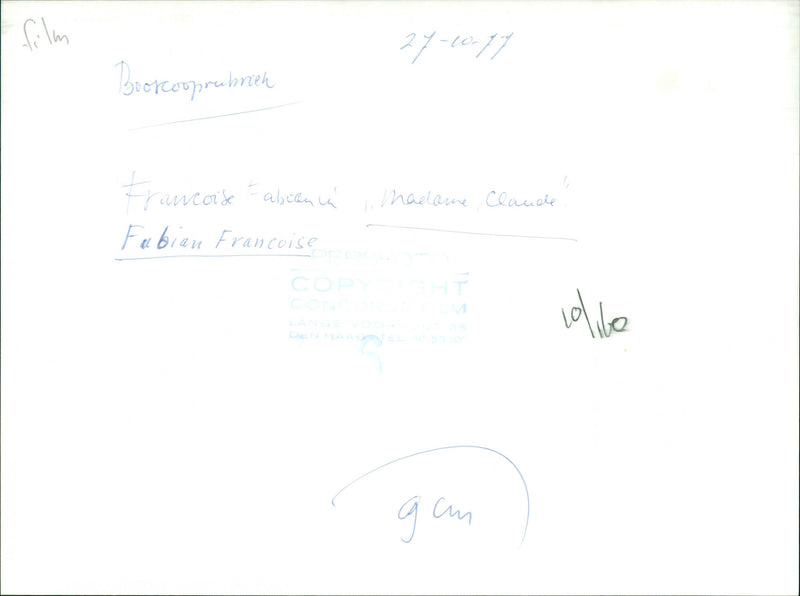 film
27-10-77
Francoise Fabian in „Madame Claude"
Fabian Francoise
COPYRIGHT
CONCORDE FILM
LANGE VOORHOUT 35
DEN HAAG TEL.
10/160
9 cm